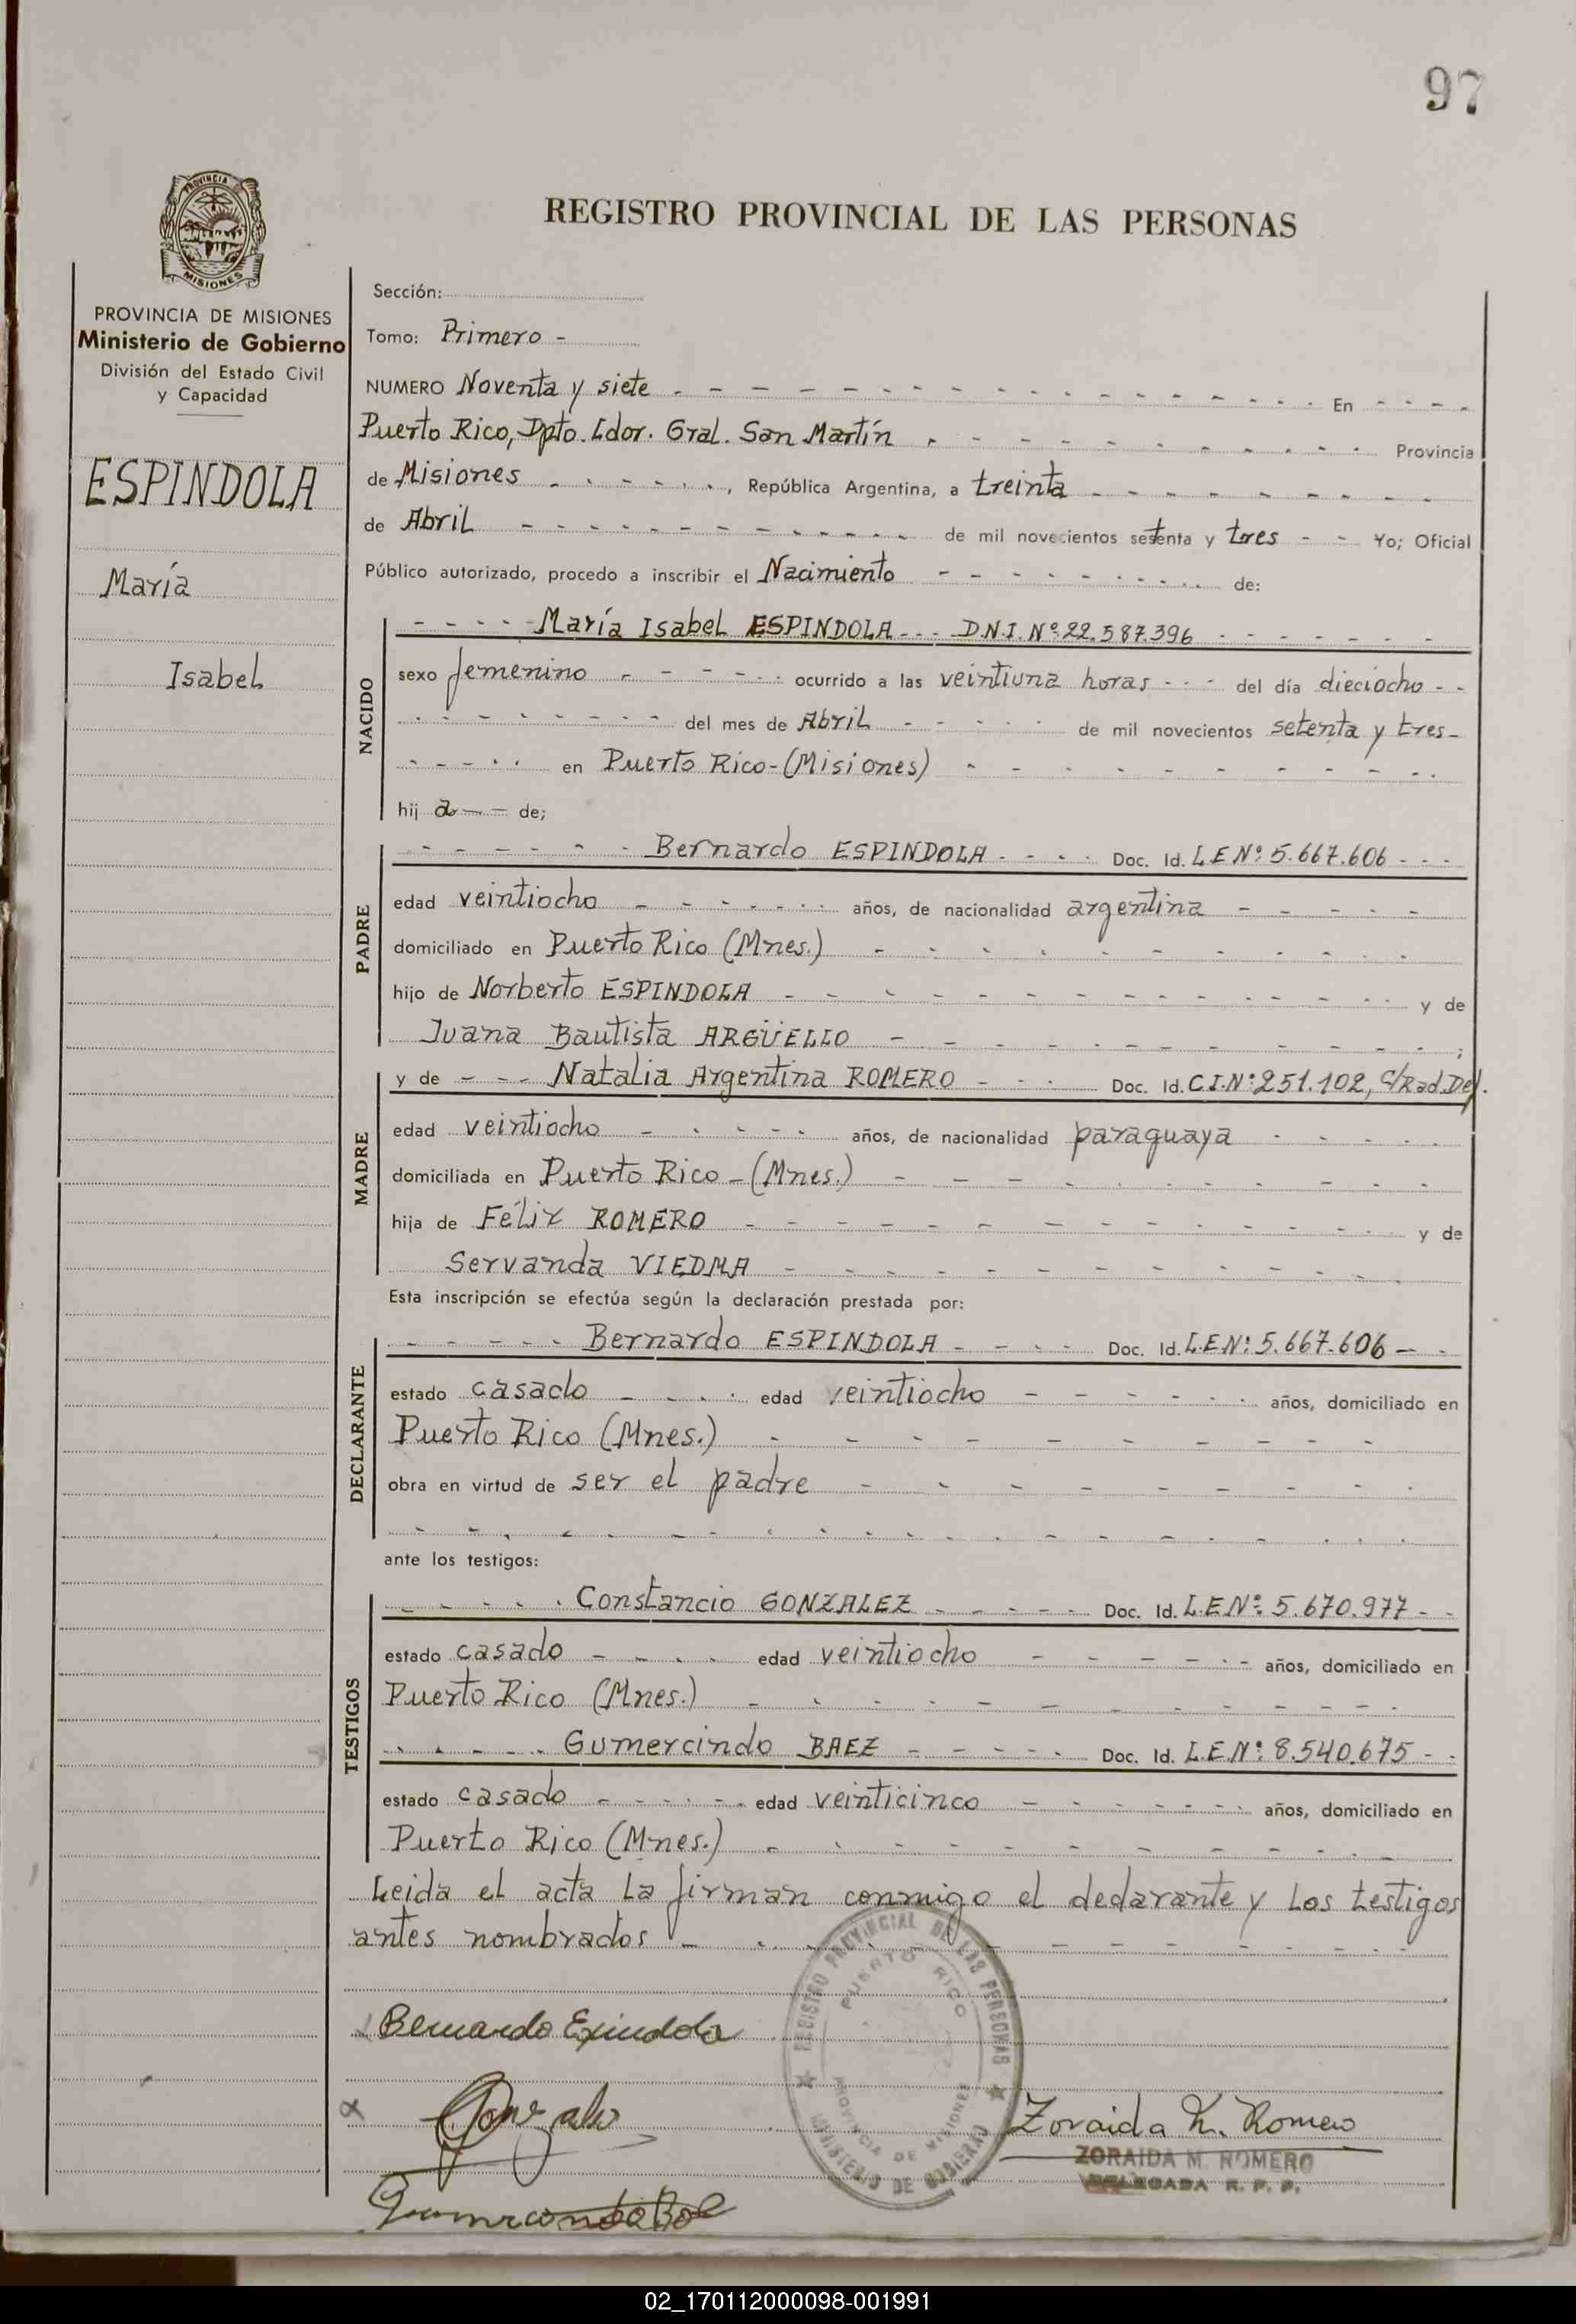 97
PROVINCIA
MISIONES
REGISTRO PROVINCIAL DE LAS PERSONAS
PROVINCIA DE MISIONES
Ministerio de Gobierno
División del Estado Civil
y Capacidad
ESPINDOLA
María
Isabel
Sección:
Tomo: Primero -
NUMERO Noventa y siete - - - En - - -
Puerto Rico, Dpto. Ldor. Gral. San Martín - - - Provincia
de Misiones - - -, República Argentina, a treinta - - -
de Abril - - - de mil novecientos setenta y tres - - Yo; Oficial
Público autorizado, procedo a inscribir el Nacimiento - - - de:
NACIDO
- - - - María Isabel ESPINDOLA - - - D.N.I. Nº 22.587.396 - - -
sexo femenino - - - ocurrido a las veintiuna horas - - - del día dieciocho - -
- - - del mes de Abril - - - de mil novecientos setenta y tres -
- - - en Puerto Rico - (Misiones) - - -
hij a - - de;
PADRE
- - - Bernardo ESPINDOLA - - - Doc. Id. L.E Nº: 5.667.606 - - -
edad veintiocho - - - años, de nacionalidad argentina - - -
domiciliado en Puerto Rico (Mnes.) - - -
hijo de Norberto ESPINDOLA - - - y de
Juana Bautista ARGÜELLO - - - ;
MADRE
y de - - - Natalia Argentina ROMERO - - - Doc. Id. C.I. Nº: 251.102, C/Rad. Def.
edad veintiocho - - - años, de nacionalidad paraguaya - - -
domiciliada en Puerto Rico - (Mnes.) - - -
hija de Félix ROMERO - - - y de
Servanda VIEDMA - - -
Esta inscripción se efectúa según la declaración prestada por:
DECLARANTE
- - - Bernardo ESPINDOLA - - - Doc. Id. L.E Nº: 5.667.606 - -
estado casado - - - edad veintiocho - - - años, domiciliado en
Puerto Rico (Mnes.) - - -
obra en virtud de ser el padre - - -
- - -
ante los testigos:
TESTIGOS
- - - Constancio GONZALEZ - - - Doc. Id. L.E Nº: 5.670.977 - -
estado casado - - - edad veintiocho - - - años, domiciliado en
Puerto Rico (Mnes.) - - -
- - - Gumercindo BAEZ - - - Doc. Id. L.E Nº: 8.540.675 - -
estado casado - - - edad veinticinco - - - años, domiciliado en
Puerto Rico (Mnes.) - - -
Leida el acta la firman conmigo el declarante y los testigos
antes nombrados - - -
REGISTRO PROVINCIAL DE LAS PERSONAS
PUERTO RICO
PROVINCIA DE MISIONES
MINISTERIO DE GOBIERNO
Bernardo Espindola
Gonzalez
Zoraida M. Romero
ZORAIDA M. ROMERO
DELEGADA R. P. P.
02_170112000098-001991